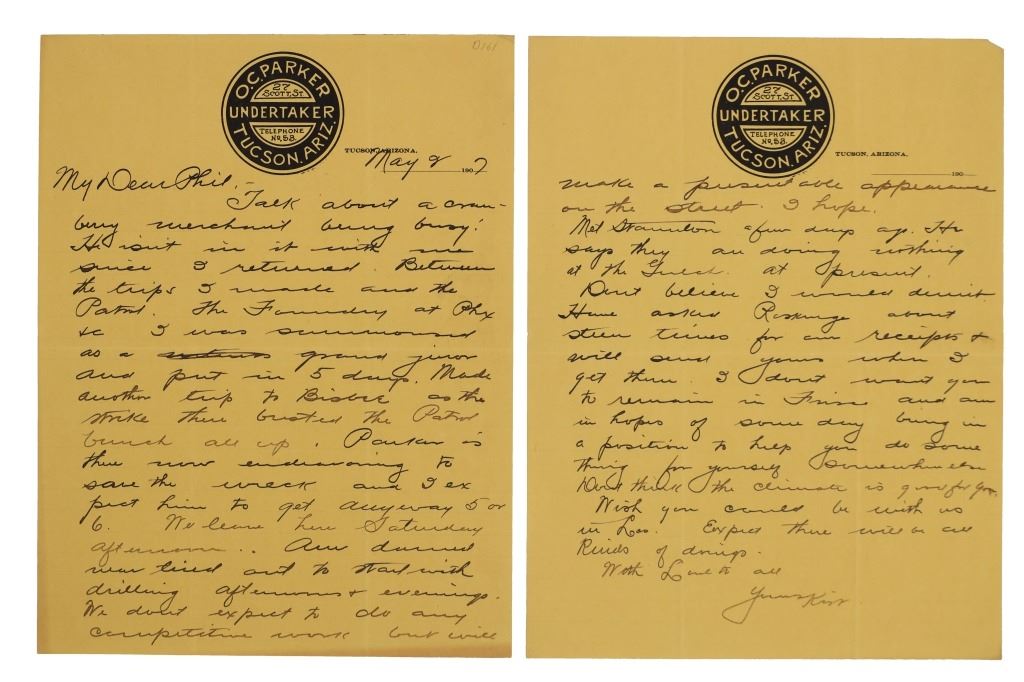 0161
O.C. PARKER
27
SCOTT. ST.
UNDERTAKER
TELEPHONE
No. 58.
TUCSON, ARIZ.
TUCSON, ARIZONA.
May 8 1907
My Dear Phil,
Talk about a cran-
berry merchant being busy!
He isnt in it with me
since I returned. Between
the trips I made and the
Patrol. The Foundry at Phx
&c I was summoned
as a grand juror
and put in 5 days. Made
another trip to Bisbee as the
strike there busted the Patrol
bunch all up. Parker is
there now endeavoring to
save the wreck and I ex
pect him to get anyway 5 or
6. We leave here Saturday
afternoon.. Am darned
near tired out to start with
drilling afternoons & evenings.
We dont expect to do any
competitive work but will
O.C. PARKER
27
SCOTT. ST.
UNDERTAKER
TELEPHONE
No. 58.
TUCSON, ARIZ.
TUCSON, ARIZONA.
190
make a presentable appearance
on the street. I hope.
Met a few days ago. He
says they are doing nothing
at the Gulch at present.
Dont believe I would
Have asked about
steen times for our receipts &
will send yours when I
get them. I dont want you
to remain in and am
in hopes of some day being in
a position to help you do some
thing for yourself somewhere else
Dont think the climate is good for you.
Wish you could be with us
in Los. Expect there will be all
Kinds of doings.
With Love to all
Yours